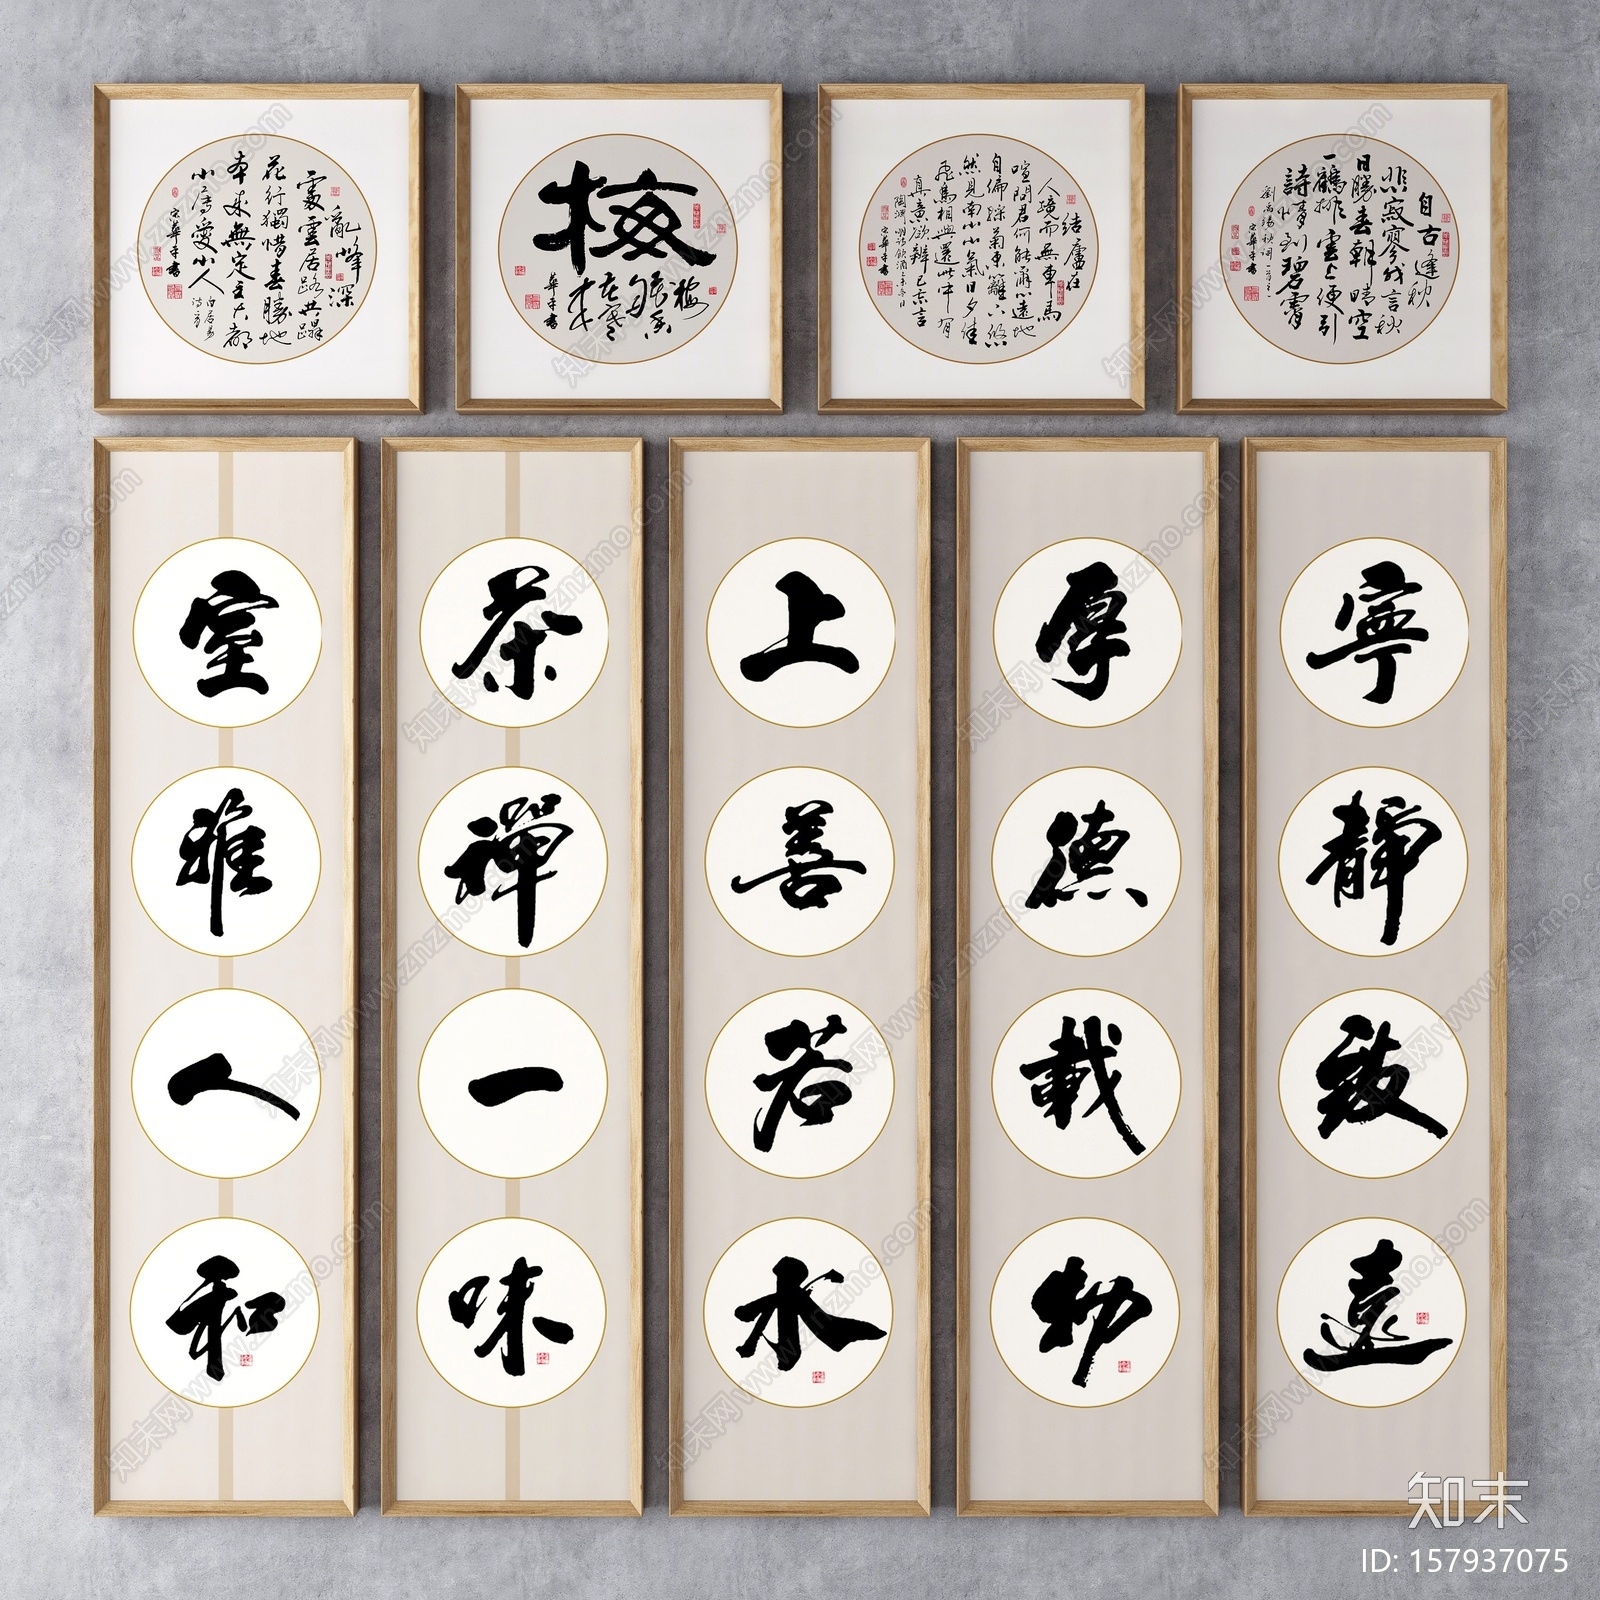 亂峰深
處雲居路共蹋
花行獨惜春勝地
本來無定主大都
山屬愛山人
白居易
華平書
梅
華平書
結廬在
人境而無車馬
喧問君何能爾心遠地
自偏採菊東籬下悠
然見南山山氣日夕佳
飛鳥相與還此中有
真意欲辨已忘言
陶淵明詩飲酒
華平書
自古逢秋
悲寂寥我言秋
日勝春朝晴空
一鶴排雲上便引
詩情到碧霄
劉禹錫秋詞一首
華平書
室雅人和
茶禪一味
上善若水
厚德載物
寧靜致遠
知末
ID: 157937075
知末网www.znzmo.com